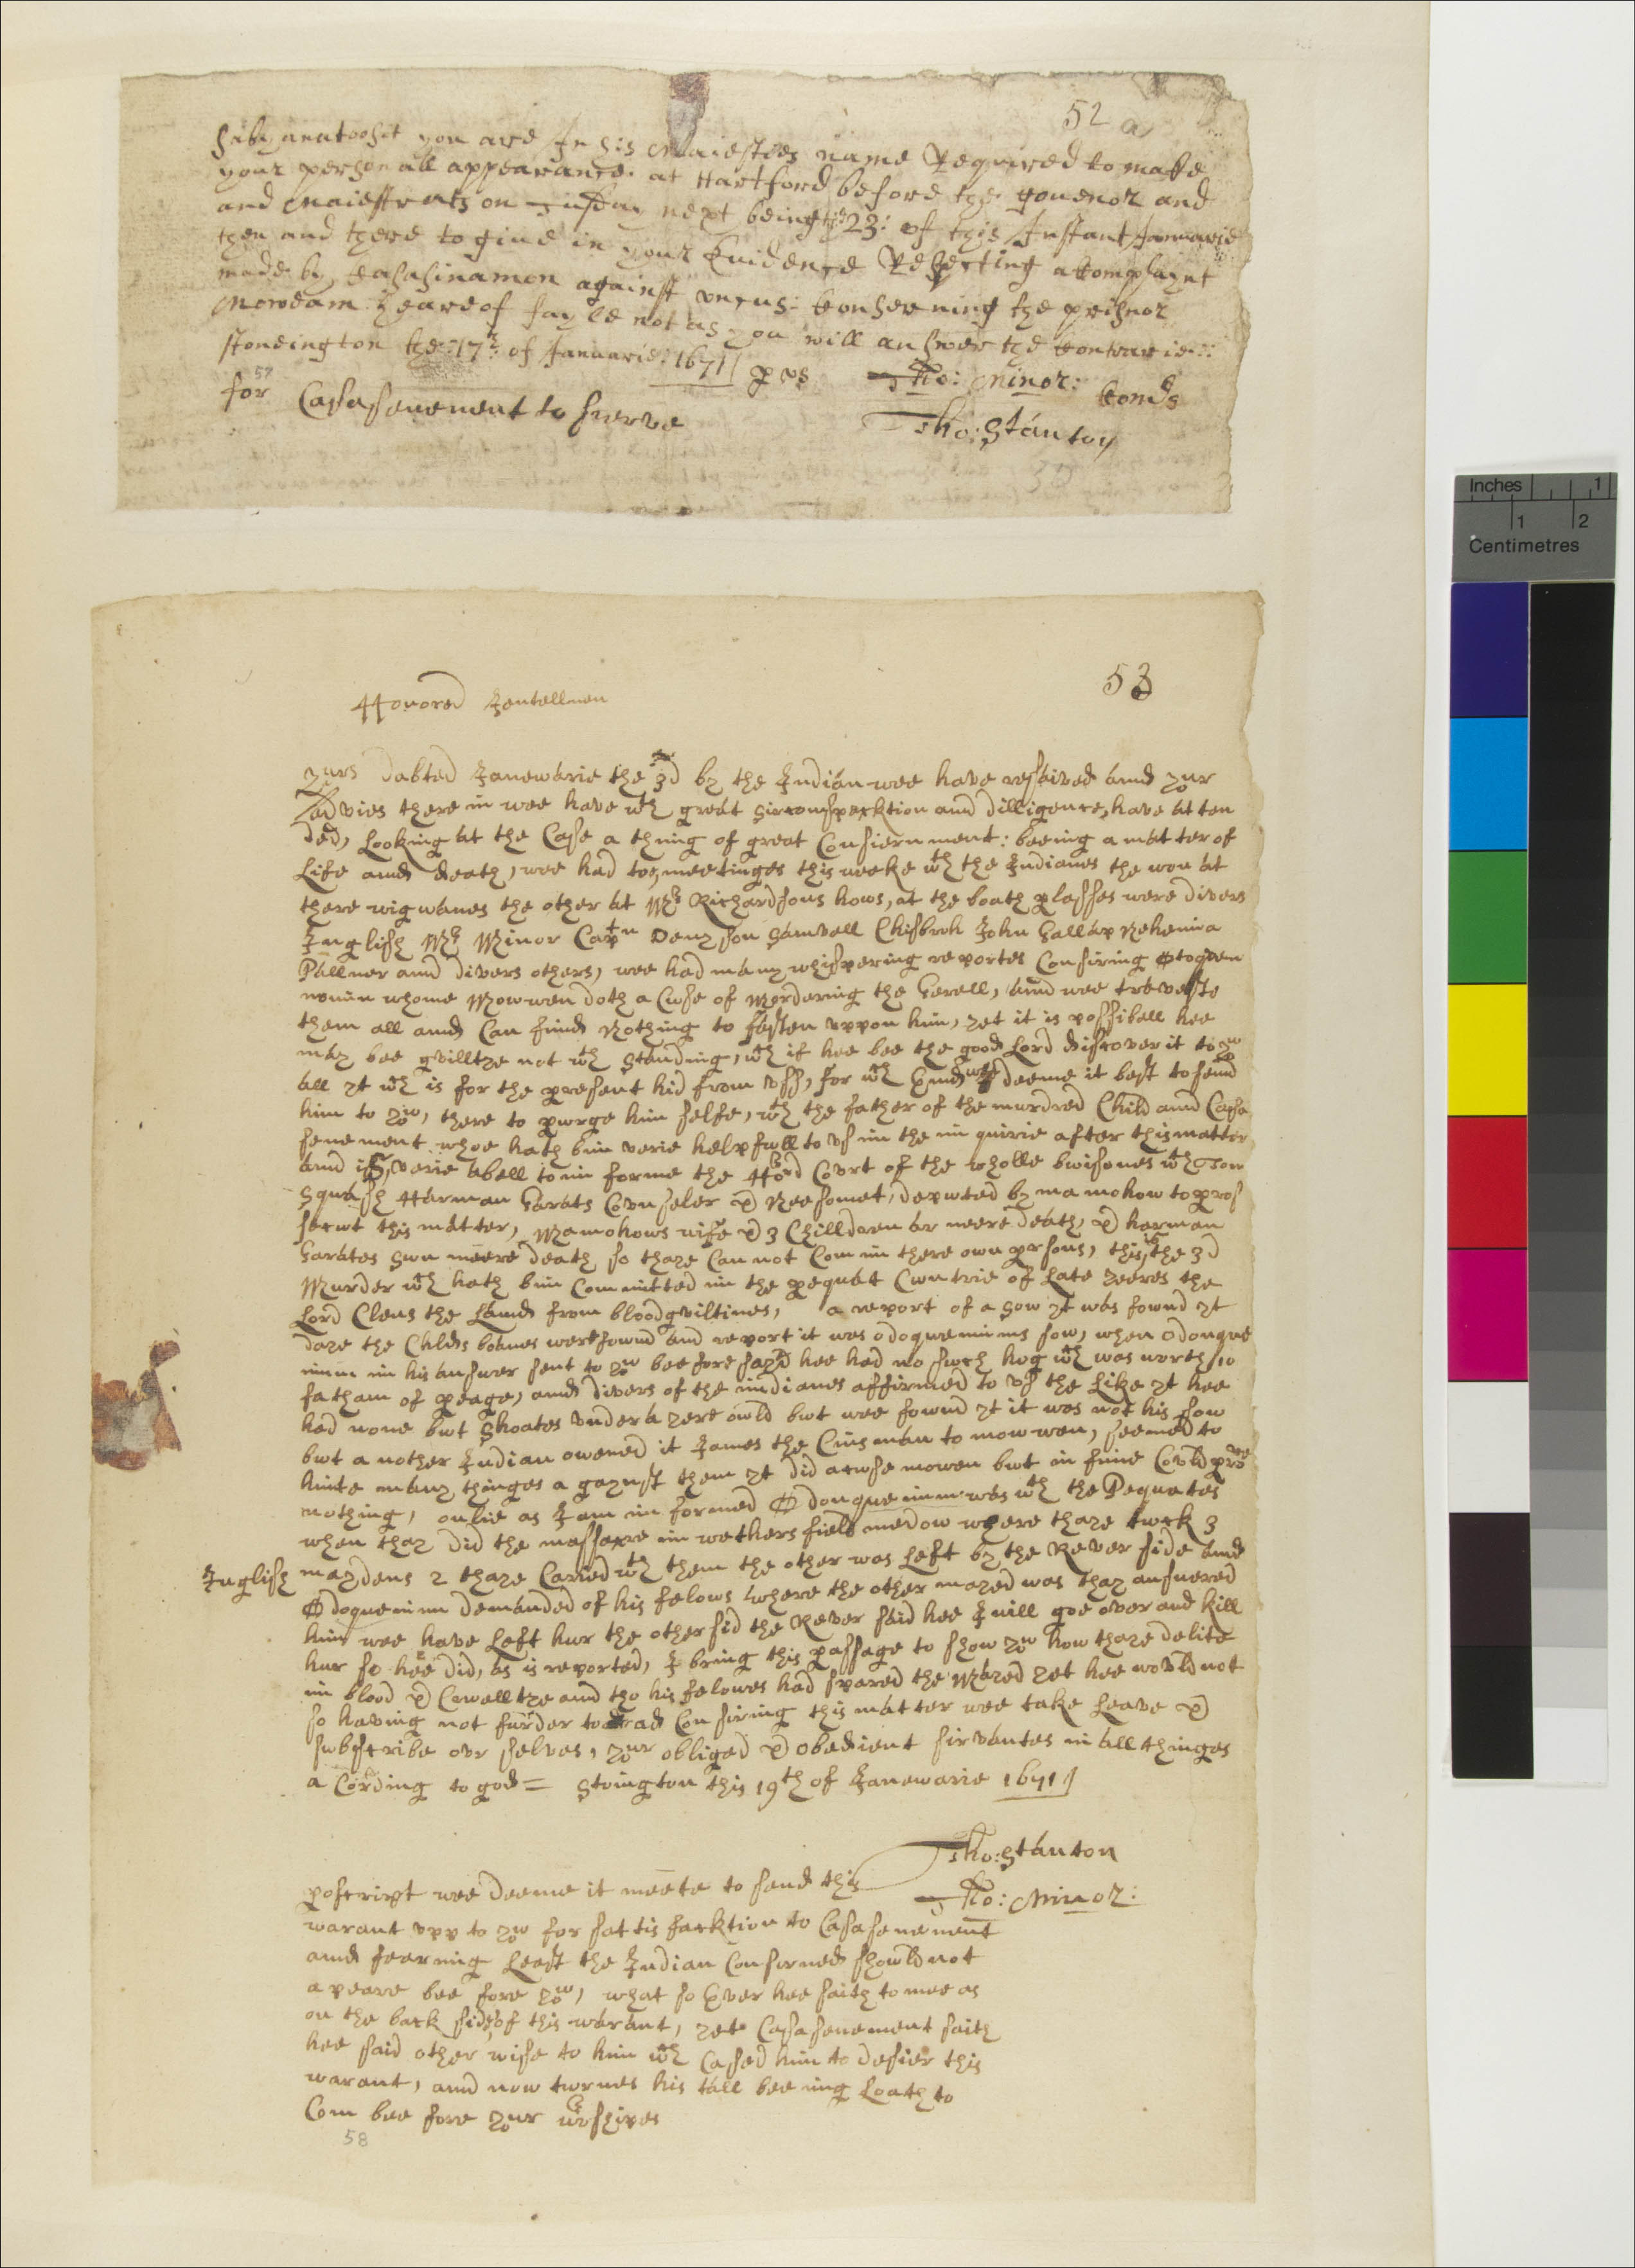 52 a
you are In his Maiesties name Required to make
your personall appearance at Hartford before the gouenor and
and Maiestrats on next being the 23: of this Instant Januarie
then and there to giue in your Euidence Respecting a Complaynt
made by Casasinamon against vncus: Conserning the prisnor
Moweam heareof fayle not as you will answer the Contrarie:
stoneington the: 17th: of Januarie: 1671 p vs Tho: Minor:
57 Comds
for Casasenement to sierve Tho: Stanton
53
Honored Jentellmen
yurs dated Janewarie the 3d by the Indian wee have resaived and your
advies there in wee have wth great sircomspecktion and dilligence, have at ten
ded, Looking at the Case a thing of great Consiernment: beeing a matter of
Life and death, wee had meetinges this weeke wth the Indianes the won at
there wigwames the other at Mr Richardsons hows, at the boath plasses were divers
Inglish Mr Minor Captn Denyson Samvell Chisbroh John Gallap Nehemia
Pallmer and divers others, wee had many whispering reportes Consiring
whome Mowwen doth a Cuse of Mordering the Gerell, and wee
them all and Can find Nothing to fasten vppon him, yet it is possiball hee
may bee gvilltye not wth standing, wch if hee bee the good Lord discover it to yow
all yt wch is for the present hid from vss, for wch End wee deeme it best to send
him to yow, there to pwrge him selfe, wth the father of the murdred Child and Casa
senement whoe hath bin verie helpfwll to vs in the in quirie after this matter
and is verie abell to in forme the Hord Covrt of the wholle bwisones wth Tom
Sqwash Harman Garats Covnseler & Neesomet, depwted by mamohow to pros
secwt this matter, Mamohows wife & 3 Chilldren ar neere death, & harman
Garates Swn neere death so thaye Can not Com in there own persons, this is the 3d
Murder wch hath bin Committed in the pequat Cwntrie of Late yeeres the
Lord Clens the Land from bloodgviltines, a report of a Sow yt was fownd yt
daye the Childs boanes were fownd and report it was odoqueninms sow, when odonque
ninm in his answer sent to yow beefore sayed hee had no swch hog wch was worth 10
fatham of peage, and divers of the indianes affirmed to vs the Like yt hee
had none bwt Shoates vnder a yere owld bwt wee fownd yt it was not his sow
bwt a nother Indian owened it James the Cinsman to mowwen, seemed to
hinte many thinges a gaynst them yt did acwse mowen bwt in fine Covld prove
nothing, onlie as I am in formed Odonqueninm was wth the Pequates
when thay did the massacre in wethersfield medow where thaye twck 3
Inglish maydens 2 thaye Caried wth them the other was Left by the River side and
Odoqueninm demanded of his felows where the other mayed was thay answered
him wee have Left hur the other sid the River said hee I will goe over and kill
hur so hee did, as is reported, I bring this passage to show yow how thaye delite
in blood & Crwelltye and tho his felowes had spared the Mayed yet hee wovld not
so having not furder to ad Consiring this matter wee take Leave &
swbscribe ovr selves, your obliged & obedient sirvantes in all thinges
a Cording to god = Stonington this 19th of Janewarie 1671
Tho: Stanton
poscript wee deeme it meete to send this Tho: Minor:
warant vpp to yow for sattisfacktion to Casasenement
and fearing Least the Indian Consirned showld not
apeare bee fore yow, what so Ever hee saith to mee as
on the back side of this warant, yet Casasenement saith
hee said other wise to him wch Cased him to desier this
warant, and now twrnes his tall beeing Loath to
Com bee fore your worshipes
58